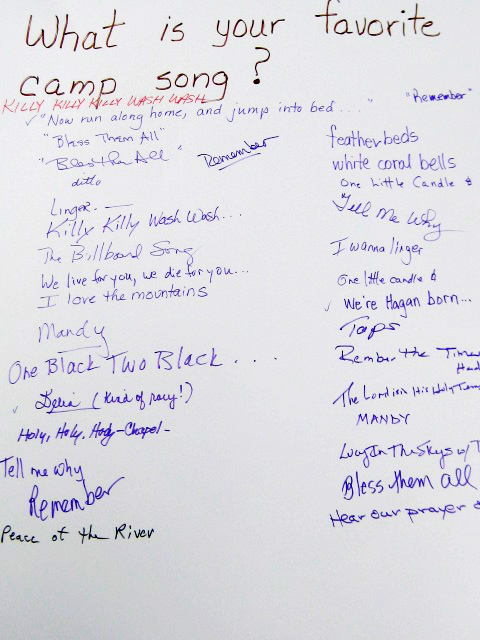 What is your favorite
camp song?
KILLY KILLY KILLY WASH WASH
"Now run along home, and jump into bed..."
"Remember"
"Bless Them All"
"Bless them All"
ditto
Remember
Linger.
Killy Killy Wash Wash...
The Billboard Song
We live for you, we die for you...
I love the mountains
Mandy
One Black Two Black . . .
Delia (kind of racy!)
Holy, Holy, Holy-Chapel-
Tell me why
Remember
Peace of the River
featherbeds
white coral bells
One Little Candle &
Tell Me Why
I wanna linger
One little candle &
We're Hagan born...
Taps
Rember the Times
Had
The Lord is in His Holy Temp
MANDY
Lucy In The Skys w/
Bless them all
Hear our prayer